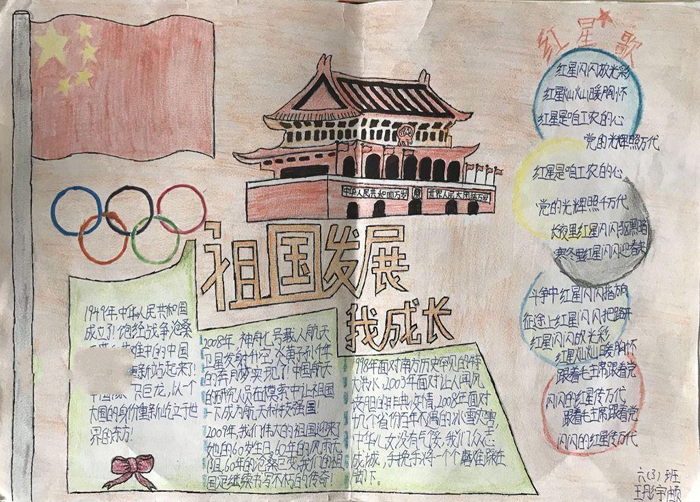 祖国发展
我成长
中华人民共和国万岁
世界人民大团结万岁
1949年,中华人民共和国
成立了!饱经战争沧桑
难中的中国
巨龙,以一个
大国的身份重新屹立于世
界的东方!
2008年,神舟七号载人航天
卫星发射升空,炎黄子孙千年
的奔月梦实现了!中国航天
的研究人员在摸索中让祖国
一下成为航天科技强国
2009年,我们伟大的祖国迎来了
她的60岁生日,60年的风雨
组,60年的沧桑巨变,我们的祖
国还继续书写不朽的传奇!
1998年面对南方历史罕见的特
大洪水,2003年面对让人闻风
丧胆的非典疫情,2008年面对
十几个省份百年不遇的冰雪灾害,
中华儿女没有气馁,我们众志
成城,手挽手将一个个磨难踩在
脚下。
红星歌
红星闪闪放光彩
红星灿灿暖胸怀
红星是咱工农的心
党的光辉照万代
红星是咱工农的心
党的光辉照千万代
长夜里红星闪闪驱黑暗
寒冬里红星闪闪迎春来
斗争中红星闪闪指方向
征途上红星闪闪把路开
红星闪闪放光彩
红星灿灿暖胸怀
跟着毛主席跟着党
闪闪的红星传万代
跟着毛主席跟着党
闪闪的红星传万代
六(3)班